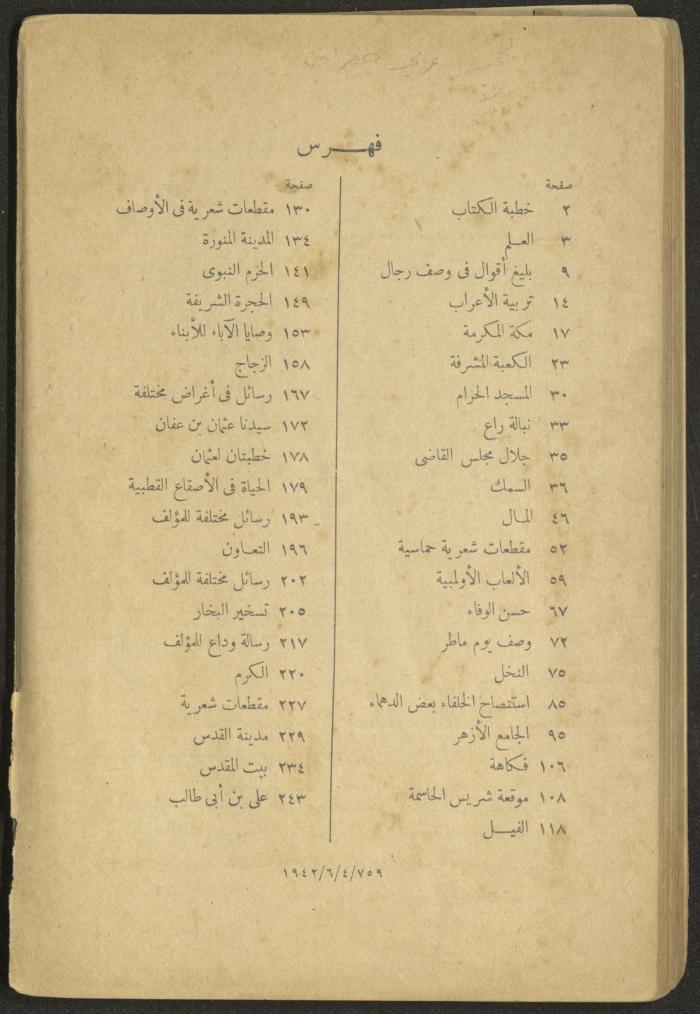 فهـــرس
صفحة
٢ خطبة الكتاب
٣ العـلم
٩ بليغ أقوال فى وصف رجال
١٤ تربية الأعراب
١٧ مكة المكرمة
٢٣ الكعبة المشرفة
٣٠ المسجد الحرام
٣٣ نبالة راع
٣٥ جلال مجلس القاضى
٣٦ السمك
٤٦ المـال
٥٢ مقطعات شعرية حماسية
٥٩ الألعاب الأولمبية
٦٧ حسن الوفاء
٧٢ وصف يوم ماطر
٧٥ النخل
٨٥ استنصاح الخلفاء بعض الدهماء
٩٥ الجامع الأزهر
١٠٦ فـكاهة
١٠٨ موقعة شريس الحاسمة
١١٨ الفيـــل
صفحة
١٣٠ مقطعات شعرية فى الأوصاف
١٣٤ المدينة المنورة
١٤١ الحرم النبوى
١٤٩ الحجرة الشريفة
١٥٣ وصايا الآباء للأبناء
١٥٨ الزجاج
١٦٧ رسائل فى أغراض مختلفة
١٧٢ سيدنا عثمان بن عفان
١٧٨ خطبتان لعثمان
١٧٩ الحياة فى الأصقاع القطبية
١٩٣ رسائل مختلفة للمؤلف
١٩٦ التعـاون
٢٠٢ رسائل مختلفة للمؤلف
٢٠٥ تسخير البخار
٢١٧ رسالة وداع للمؤلف
٢٢٠ الكرم
٢٢٧ مقطعات شعرية
٢٢٩ مدينة القدس
٢٣٤ بيت المقدس
٢٤٣ على بن أبى طالب
١٩٤٢/٦/٤/٧٥٩